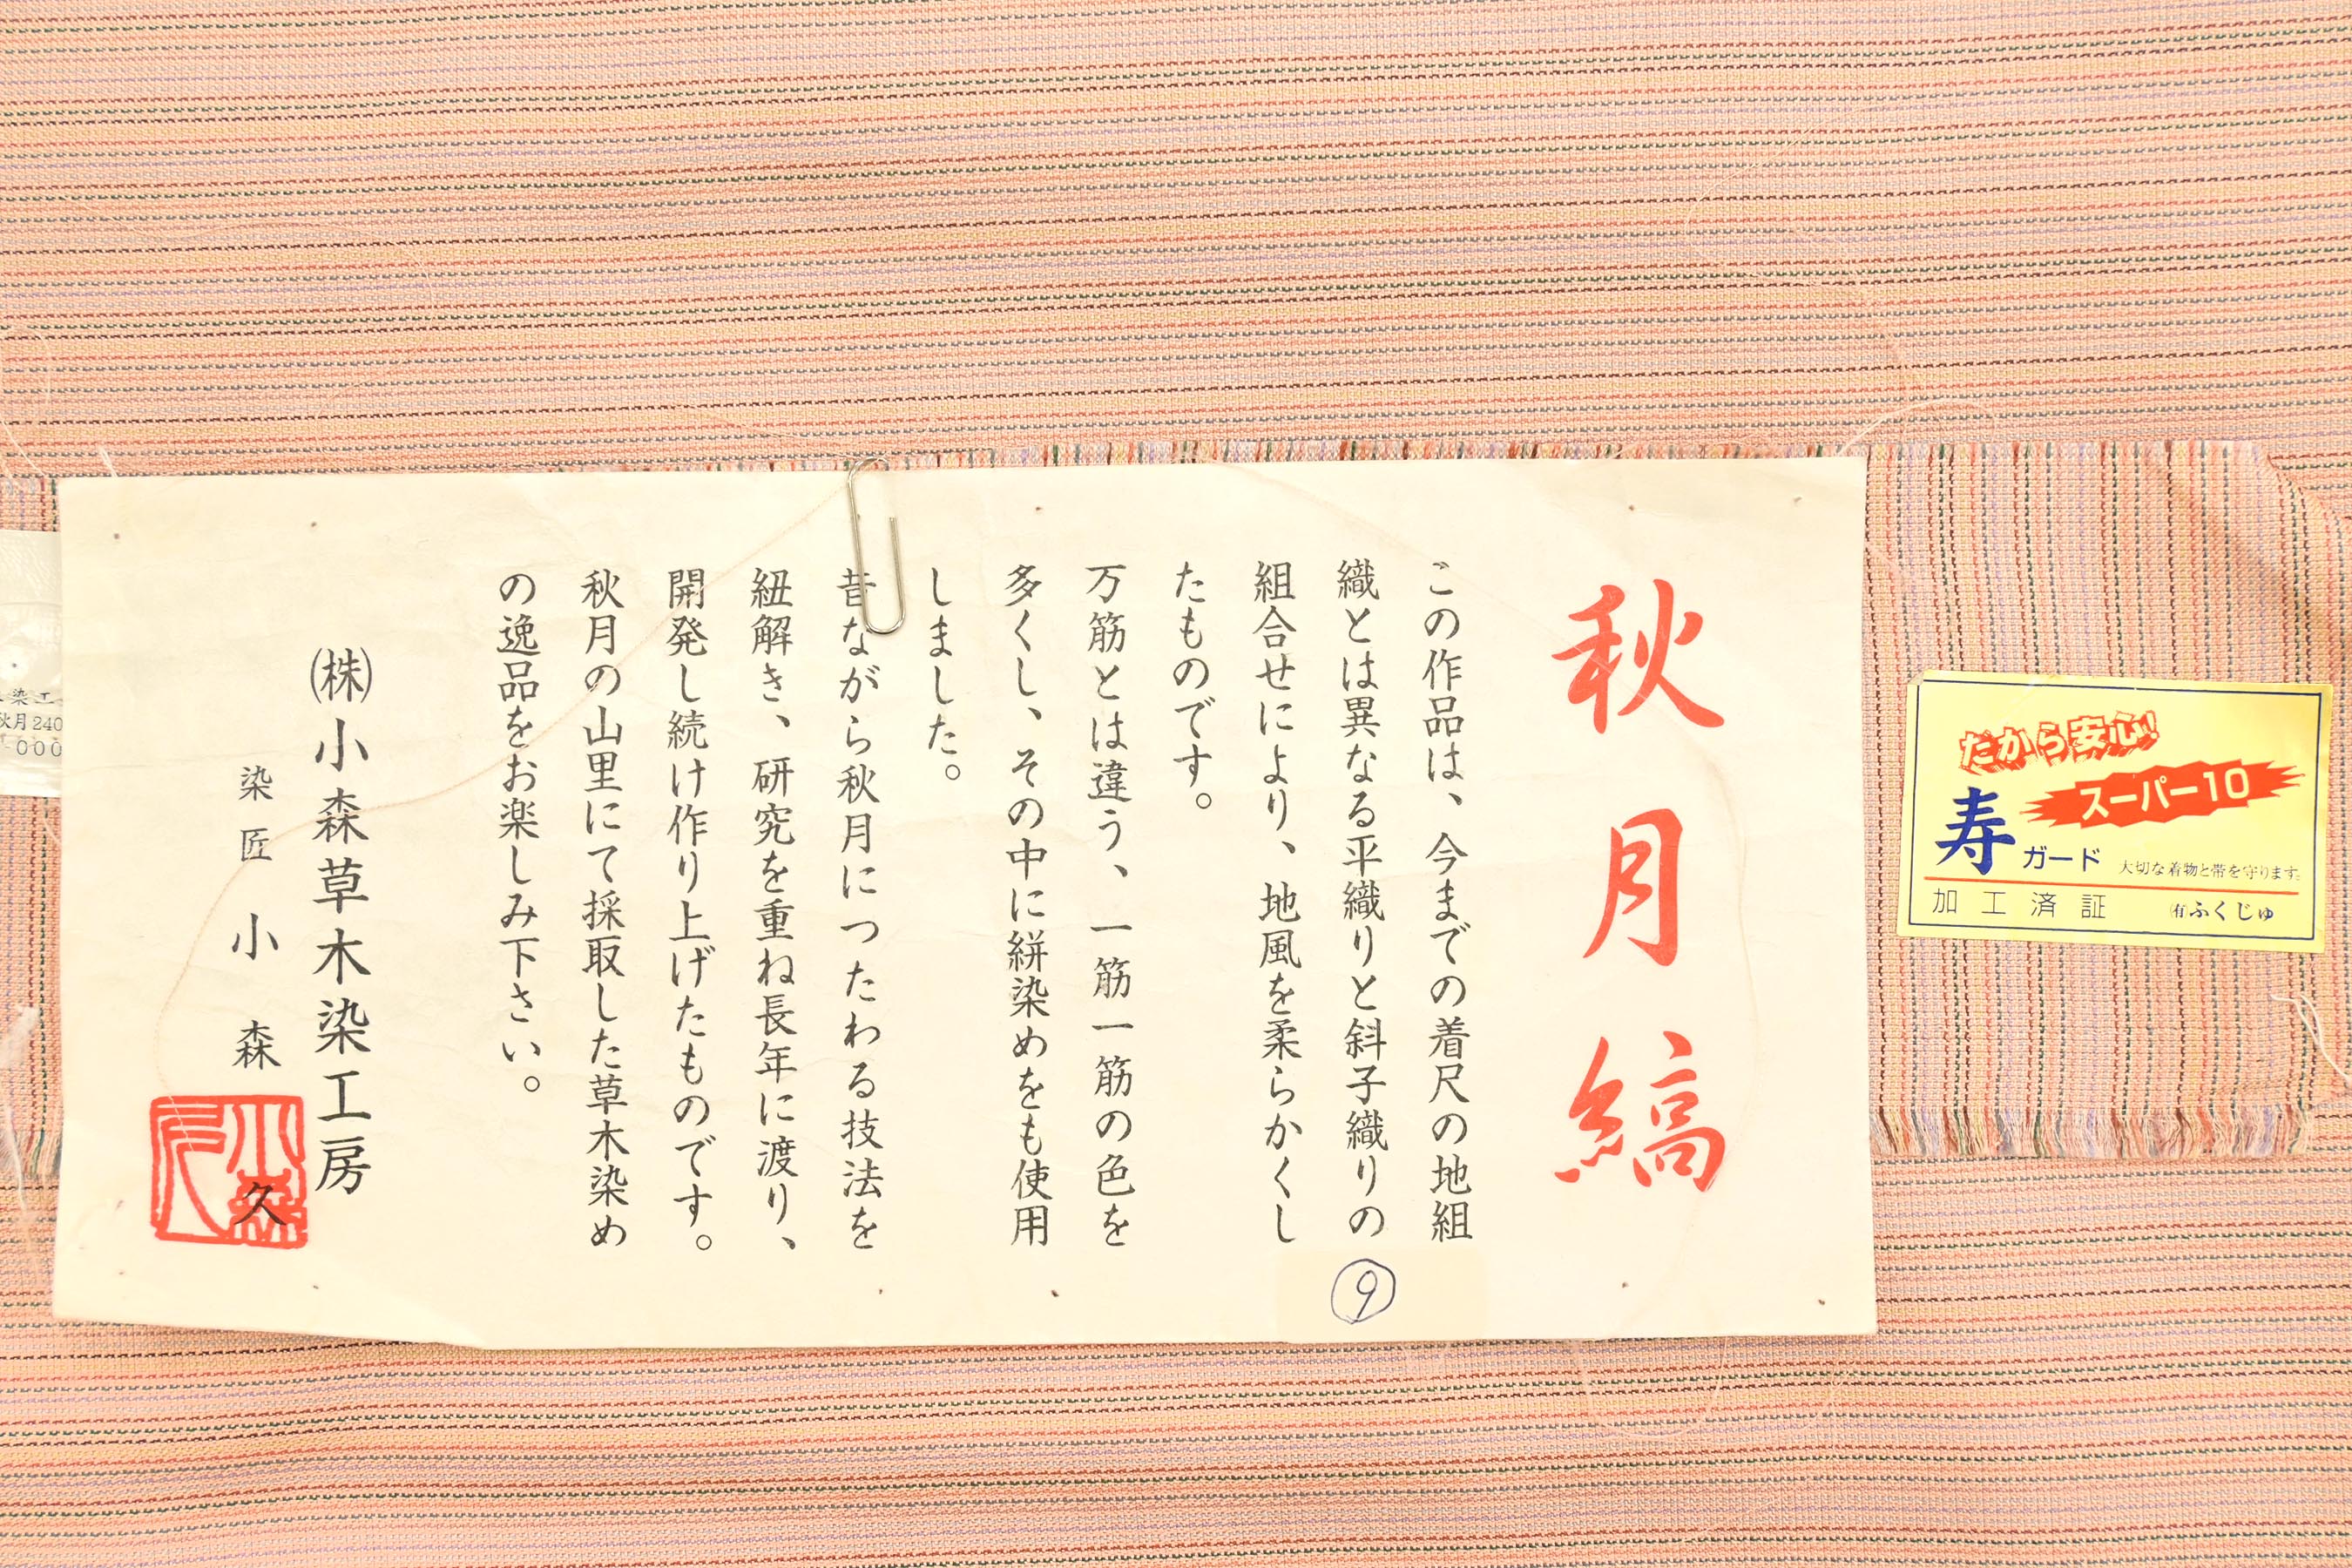 秋月縞
この作品は、今までの着尺の地組
織とは異なる平織りと斜子織りの
組合せにより、地風を柔らかくし
たものです。
万筋とは違う、一筋一筋の色を
多くし、その中に絣染めをも使用
しました。
昔ながら秋月につたわる技法を
紐解き、研究を重ね長年に渡り、
開発し続け作り上げたものです。
秋月の山里にて採取した草木染め
の逸品をお楽しみ下さい。
㈱小森草木染工房
染匠 小森 久
⑨
だから安心!
スーパー10
寿ガード
大切な着物と帯を守ります。
加工済証
㈲ふくじゅ
染工
秋月240
-000